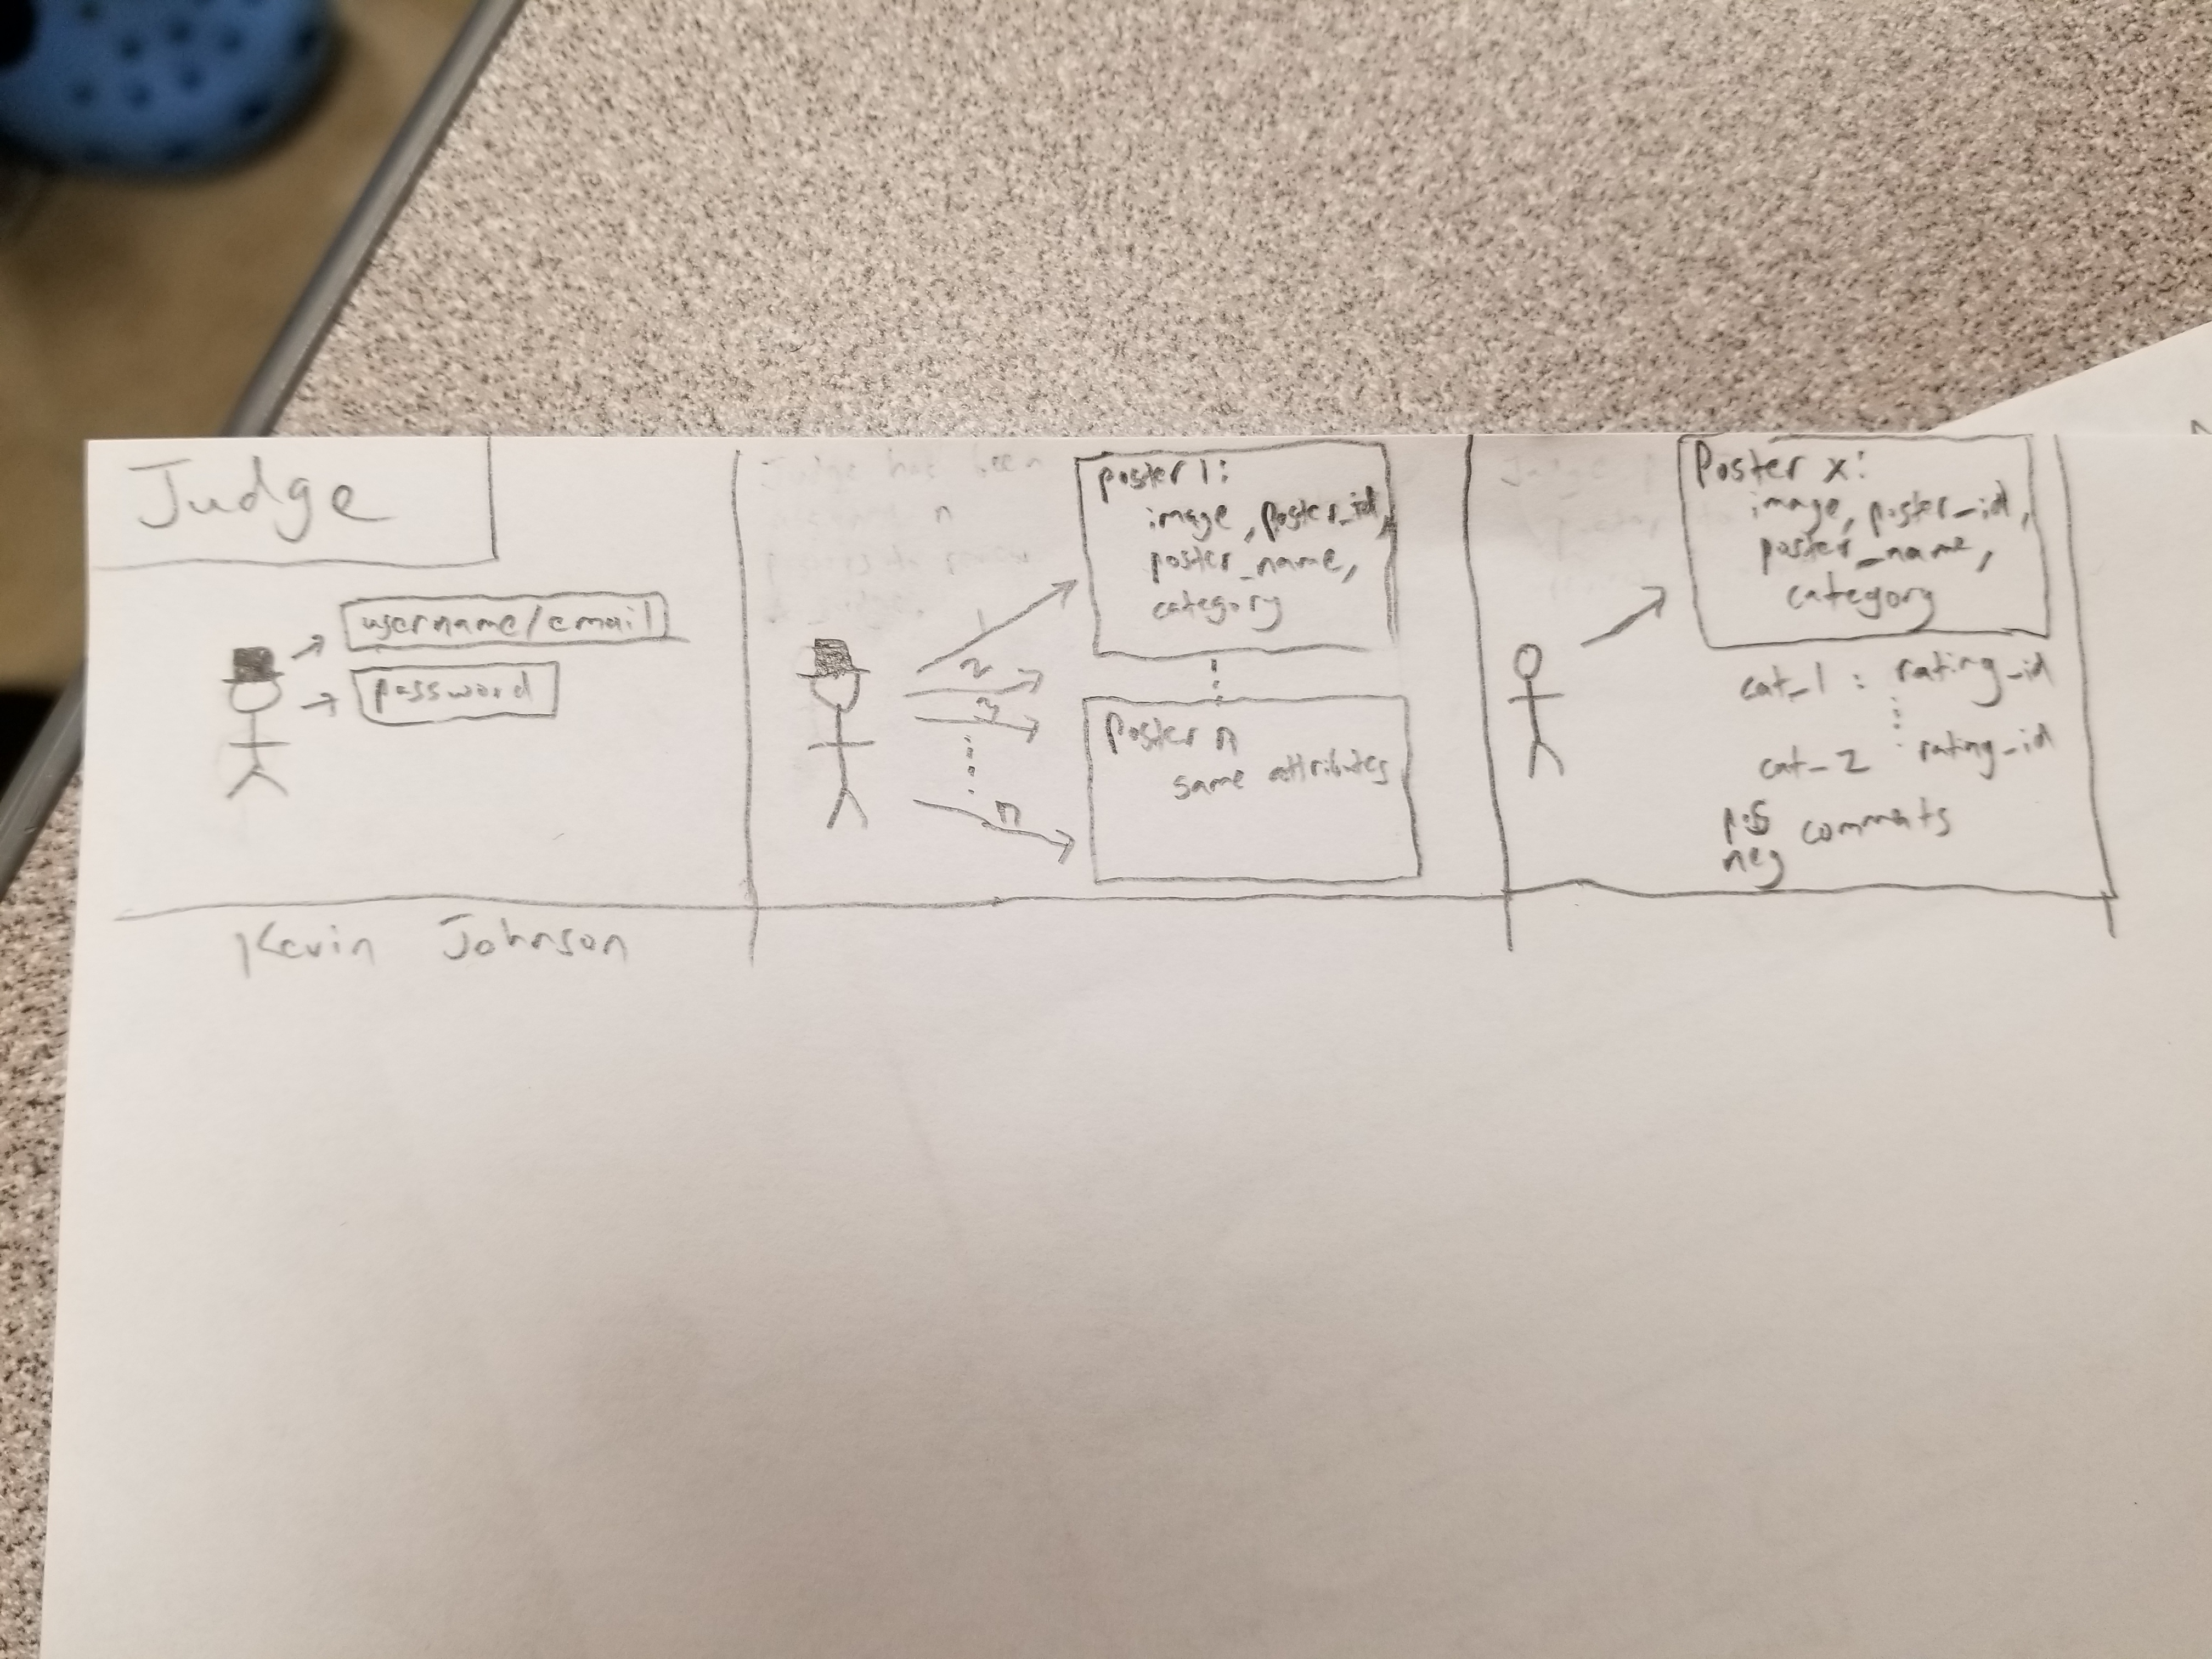 Judge
username/email
password
Kevin Johnson
Judge has been
n
1
2
3
n
poster 1:
image, poster_id,
poster_name,
category
Poster n
same attributes
Poster x:
image, poster_id,
poster_name,
category
cat_1 : rating_id
cat_2 rating_id
pos
neg comments